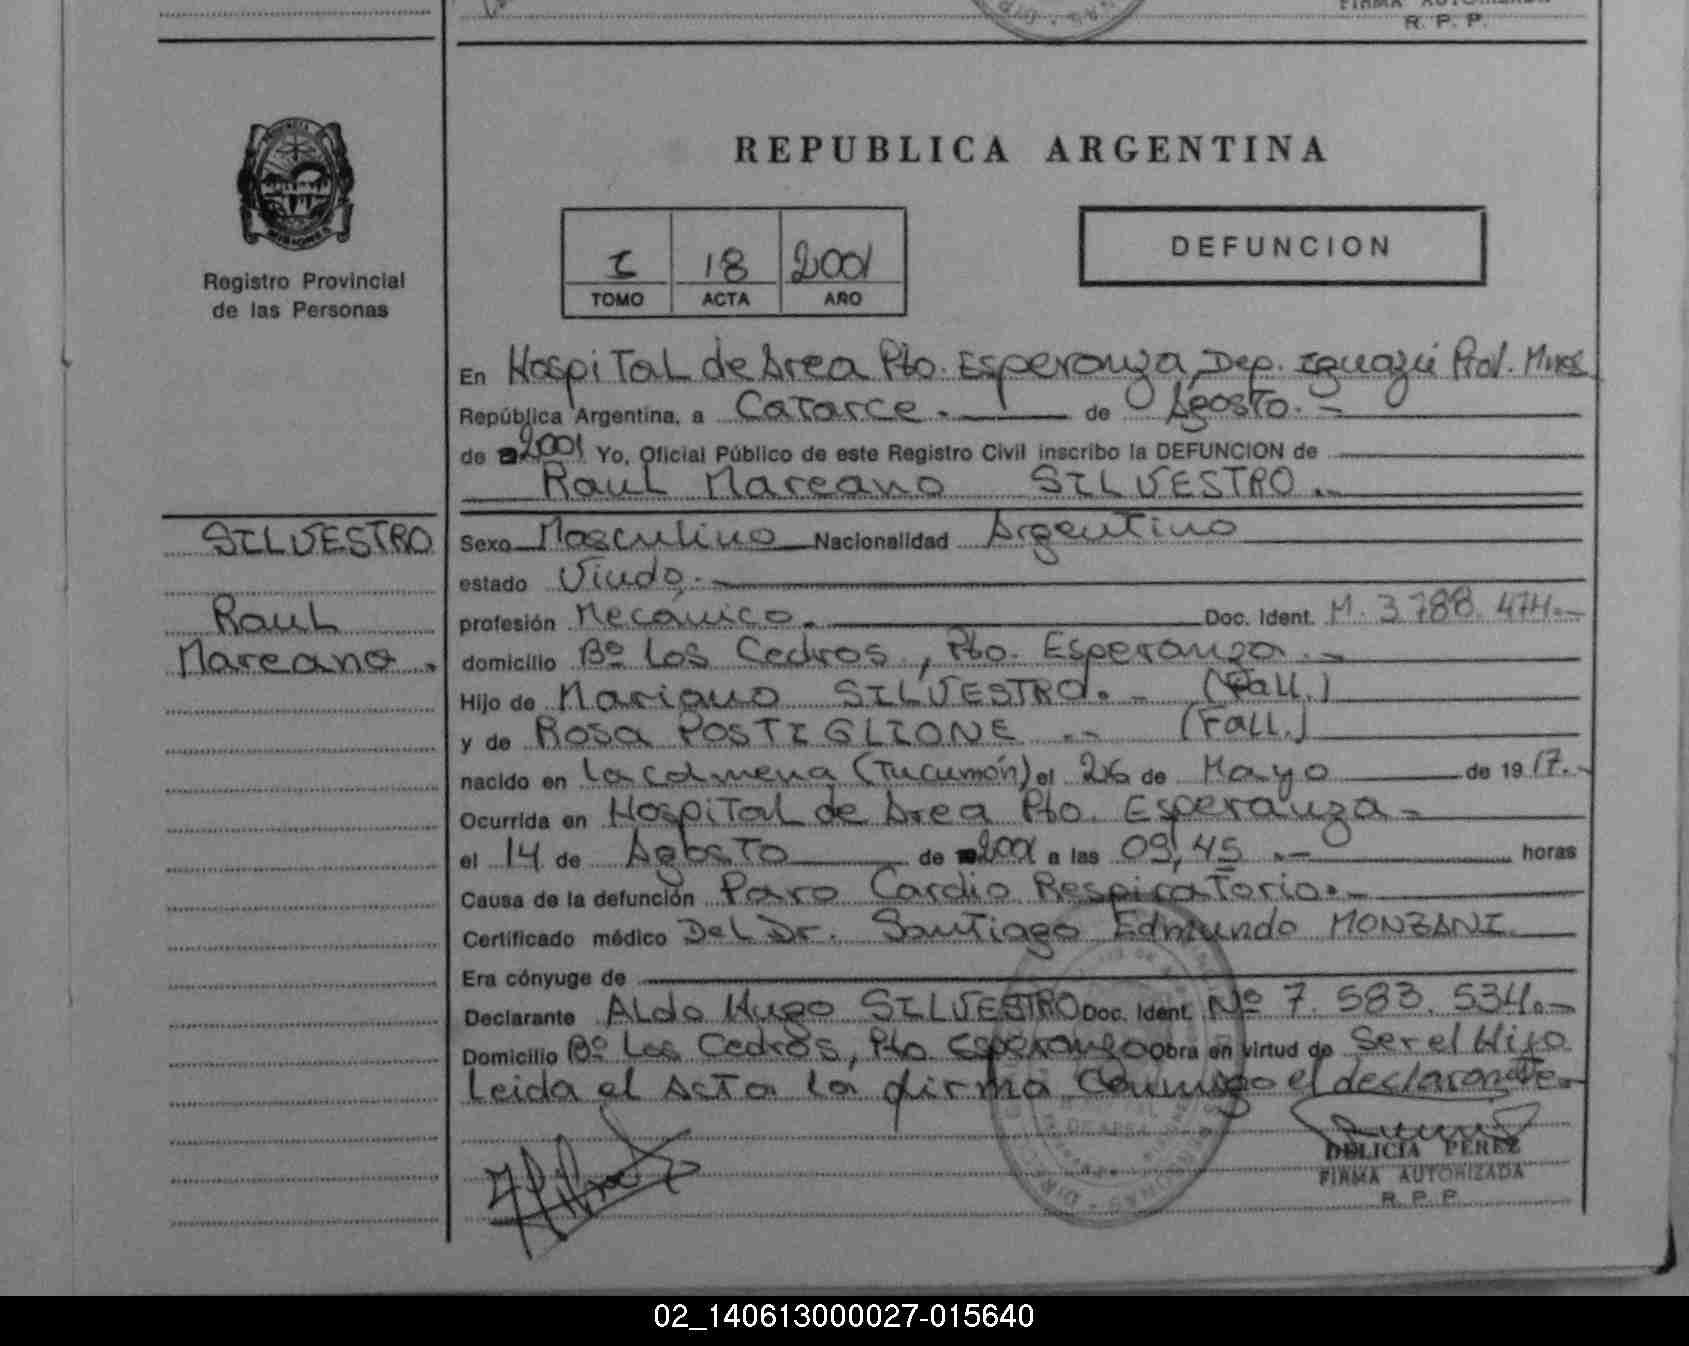 FIRMA AUTORIZADA
R. P. P.
REPUBLICA ARGENTINA
PROVINCIA DE
MISIONES
Registro Provincial
de las Personas
I 18 2001
TOMO ACTA AÑO
DEFUNCION
En Hospital de Area Pto. Esperanza, Dep. Iguazú Prov. Mnes
República Argentina, a Catorce.- de Agosto.-
de 2001 Yo, Oficial Público de este Registro Civil inscribo la DEFUNCION de
Raul Mareano SILVESTRO.-
SILVESTRO
Raul
Mareano.
Sexo Masculino Nacionalidad Argentino
estado Viudo.-
profesión Mecánico. Doc. Ident. M. 3.788.474.-
domicilio Bº Los Cedros, Pto. Esperanza.-
Hijo de Mariano SILVESTRO.- (Fall.)
y de Rosa POSTIGLIONE .- (Fall.)
nacido en La Colmena (Tucumón) el 26 de Mayo de 1917.-
Ocurrida en Hospital de Area Pto. Esperanza-
el 14 de Agosto de 2001 a las 09,45 .- horas
Causa de la defunción Paro Cardio Respiratorio.-
Certificado médico Del Dr. Santiago Edmundo MONZANI.
Era cónyuge de
Declarante Aldo Hugo SILVESTRO Doc. Ident. Nº 7.583.534.-
Domicilio Bº Los Cedros, Pto Esperanza obra en virtud de Ser el Hijo
Leida el Acta la firma Conmigo el declarante.-
DELICIA PEREZ
FIRMA AUTORIZADA
R. P. P.
02_140613000027-015640